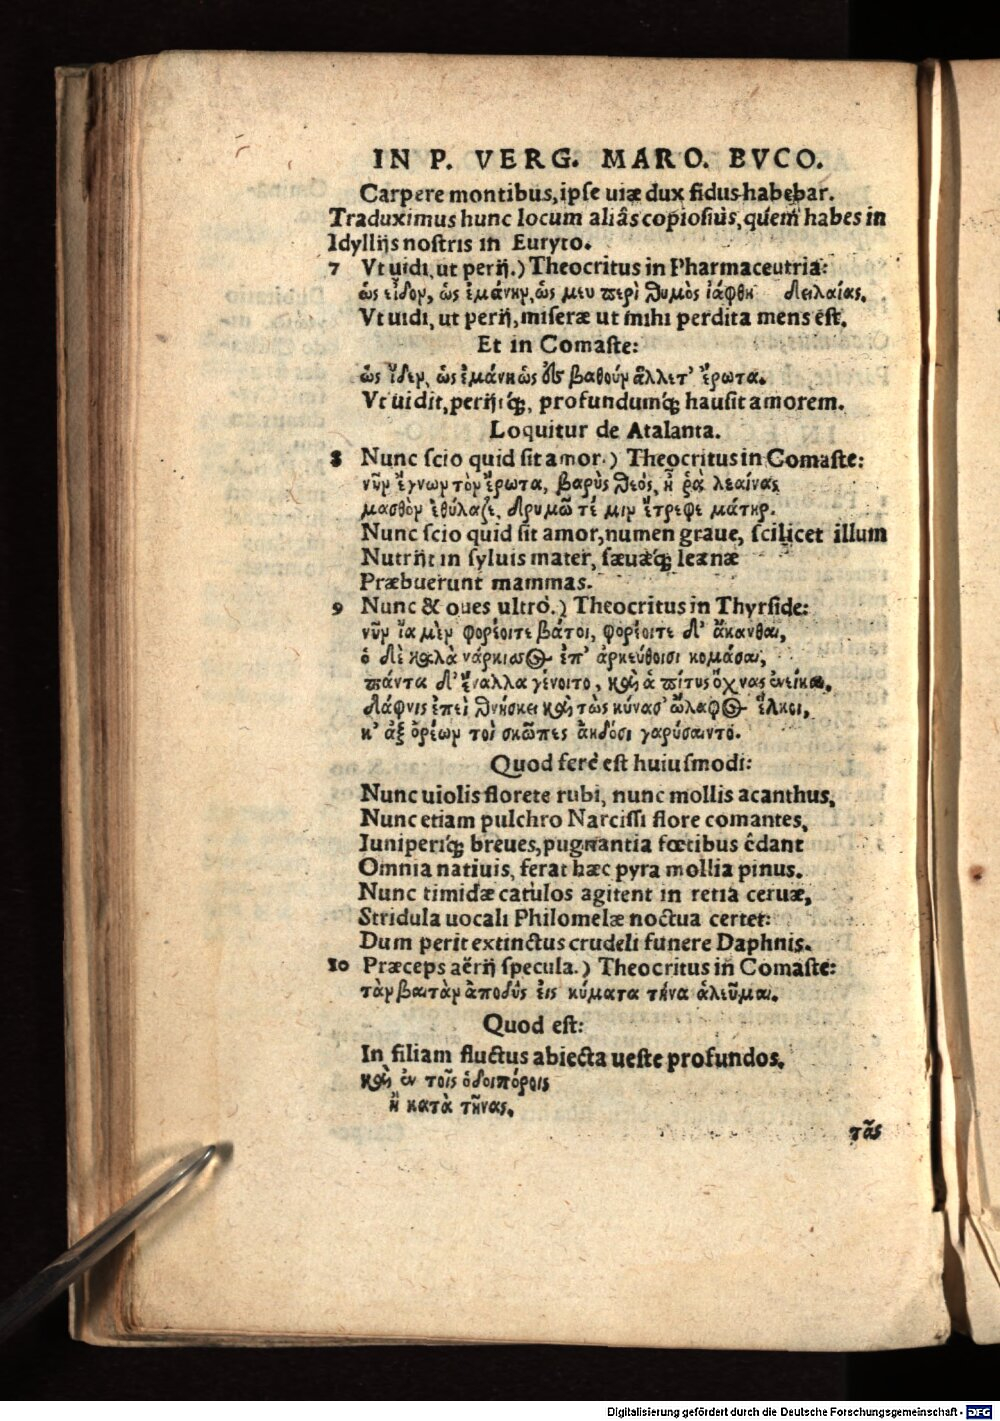 IN P. VERG. MARO. BVCO.
Carpere montibus, ipse uiæ dux fidus habebar.
Traduximus hunc locum aliâs copiosius, quem habes in
Idyllijs nostris in Euryto.
7 Vt uidi, ut perij.) Theocritus in Pharmaceutria:
ὡς εἶδον, ὡς ἐμάνην, ὡς μευ περὶ θυμὸς ἰάφθη δειλαίας.
Vt uidi, ut perij, miseræ ut mihi perdita mens est.
Et in Comaste:
ὡς ἴδεν, ὡς ἐμάνη ὡς ἐς βαθοὺν ἅλλετ' ἔρωτα.
Vt uidit, perijtq́;, profundumq́; hausit amorem.
Loquitur de Atalanta.
8 Nunc scio quid sit amor.) Theocritus in Comaste:
νῦν ἔγνων τὸν ἔρωτα, βαρὺς θεός, ἦ ῥὰ λεαίνας
μασθὸν ἐθύλαζε, δρυμῶ τέ μιν ἔτρεφε μάτηρ.
Nunc scio quid sit amor, numen graue, scilicet illum
Nutrijt in syluis mater, sæuæq́; leænæ
Præbuerunt mammas.
9 Nunc & oues ultro.) Theocritus in Thyrside:
νῦν ἴα μὲν φορέοιτε βάτοι, φορέοιτε δ' ἄκανθαι,
ὁ δὲ καλὰ νάρκισσος ἐπ' ἀρκεύθοισι κομάσαι,
πάντα δ' ἔναλλα γένοιτο, καὶ ἁ πίτυς ὄχνας ἐνείκαι,
δάφνις ἐπεὶ θνήσκει καὶ τὼς κύνας ὤλαφος ἕλκοι,
κ' ἀξ ὀρέων τοὶ σκῶπες ἀηδόσι γαρύσαιντο.
Quod ferè est huiusmodi:
Nunc uiolis florete rubi, nunc mollis acanthus,
Nunc etiam pulchro Narcissi flore comantes,
Iuniperiq́; breues, pugnantia fœtibus edant
Omnia natiuis, ferat hæc pyra mollia pinus.
Nunc timidæ catulos agitent in retia ceruæ,
Stridula uocali Philomelæ noctua certet:
Dum perit extinctus crudeli funere Daphnis.
10 Præceps aërij specula.) Theocritus in Comaste:
τὰν βαιτὰν ἀποδὺς εἰς κύματα τῆνα ἁλεῦμαι.
Quod est:
In filiam fluctus abiecta ueste profundos.
καὶ ἐν τοῖς ὁδοιπόροις
ἢ κατὰ τήνας.
τᾶς
Digitalisierung gefördert durch die Deutsche Forschungsgemeinschaft - DFG